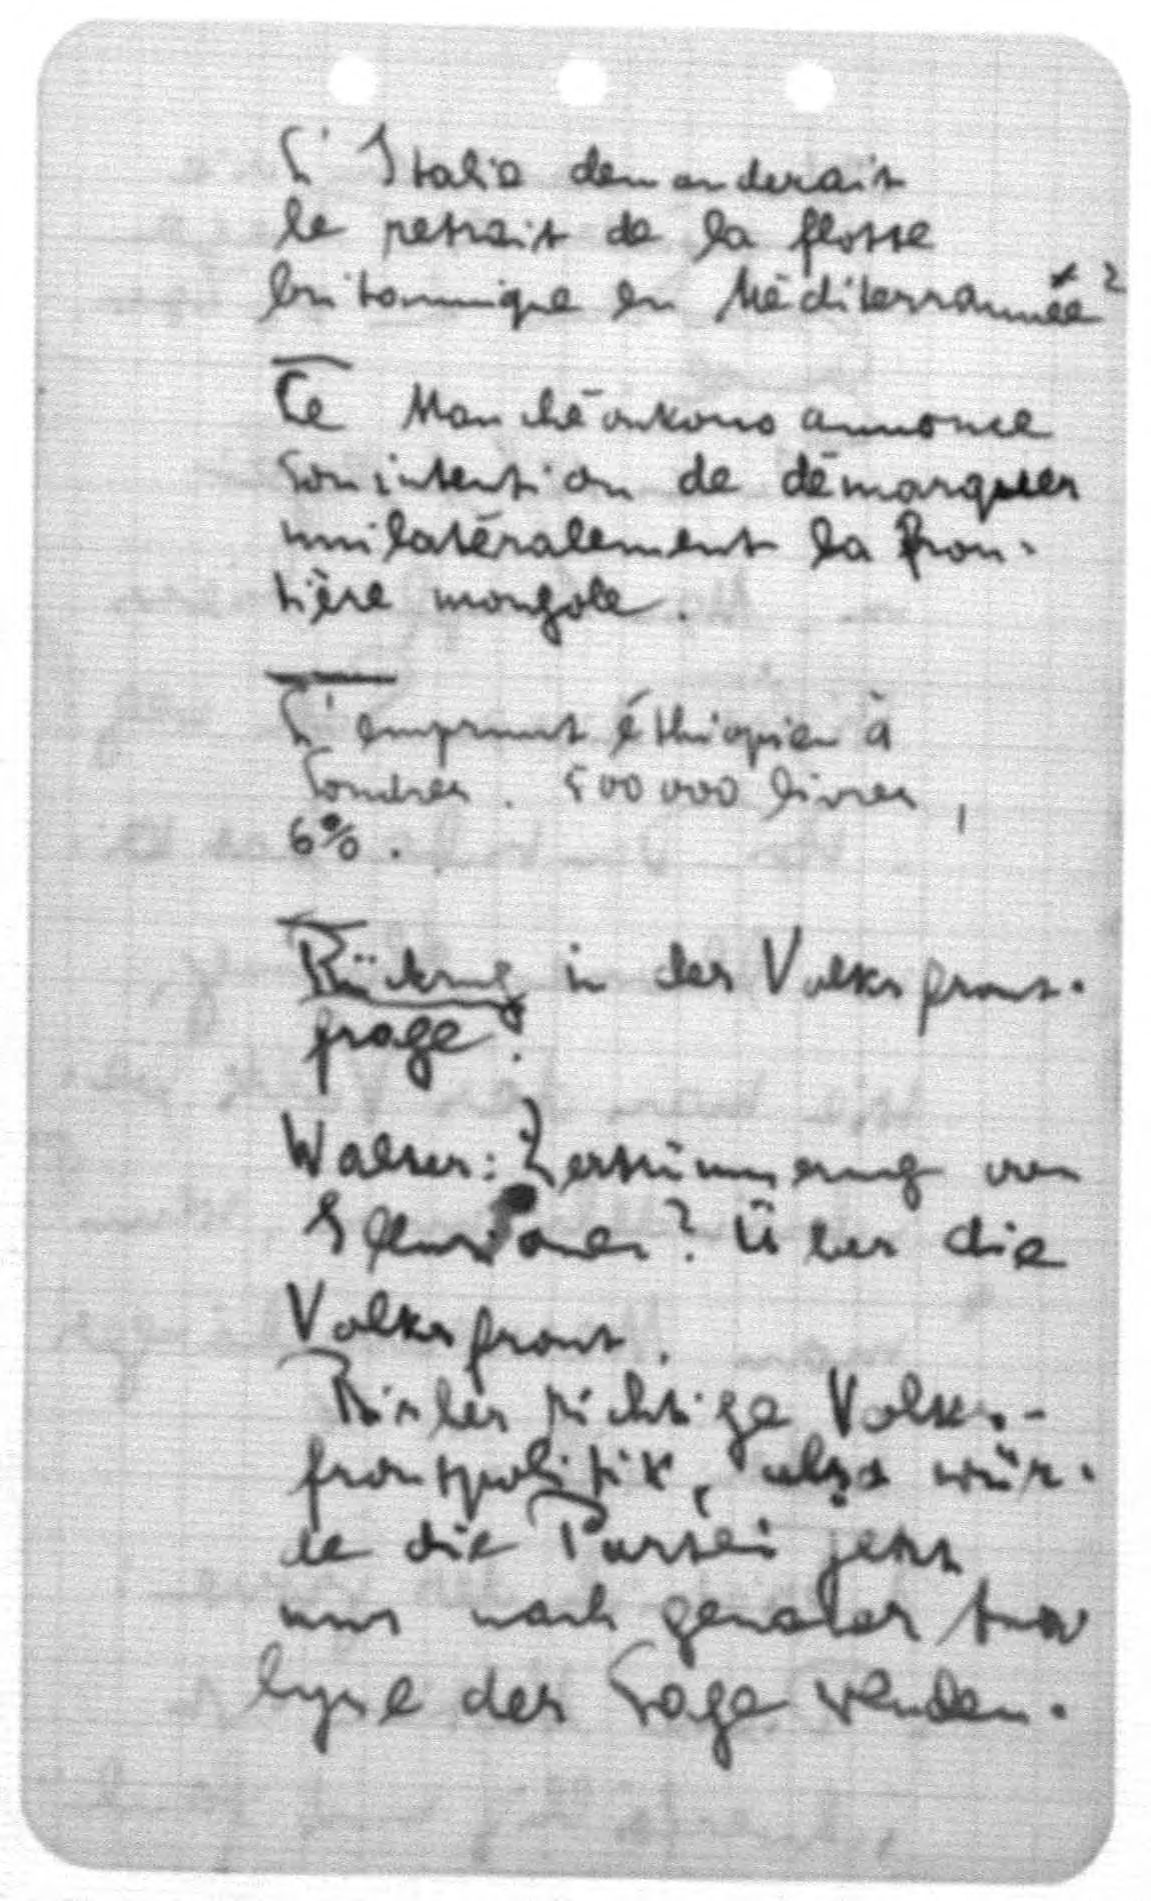 L'Italie demanderait
le retrait de la flotte
britannique en Méditerrannée?
Le Manchéoukouo annonce
son intention de démarquer
unilatéralement la fron-
tière mongole.
L'emprunt éthiopien à
Londres. 500 000 livres,
6%.
Rückzug in der Volksfront-
frage?
Walter: Zertrümmerung von
Illusionen? Über die
Volksfront.
Bisher richtige Volks-
frontpolitik, also wür-
de die Partei jetzt
nur nach genauer Ana
lyse der Lage